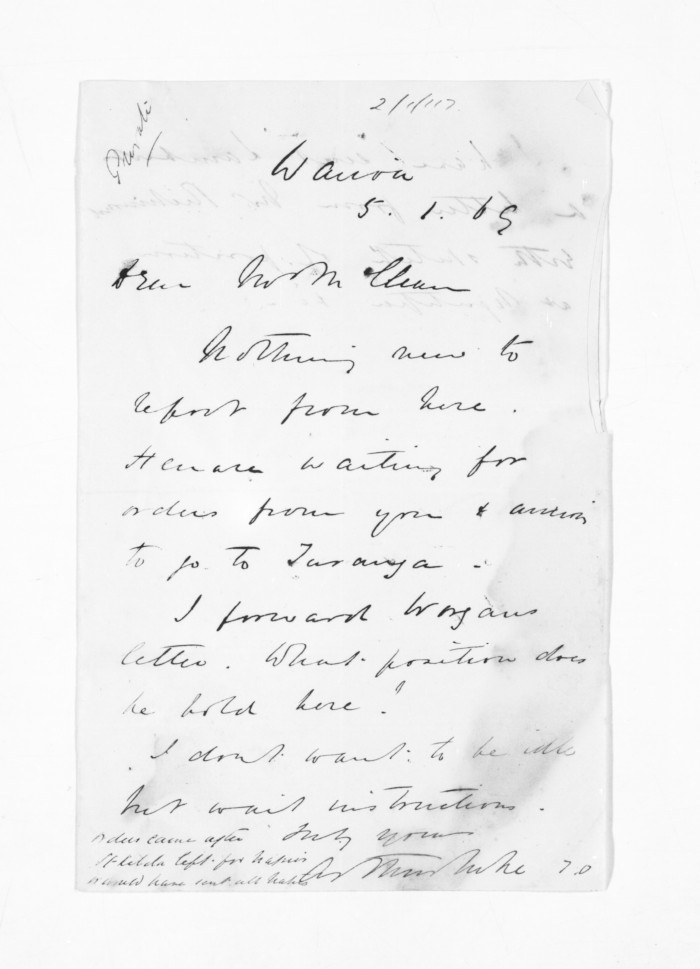 Private
Wairoa
5. 1. 69
Dear Mr McLean
Nothing new to
report from here.
Henare waiting for
orders from you & anxious
to go to Turanga -
I forward Worgans
letter. What position does
he hold here?
I dont want to be idle
but wait instructions.
orders came after
left for
would have sent all
Truly yours